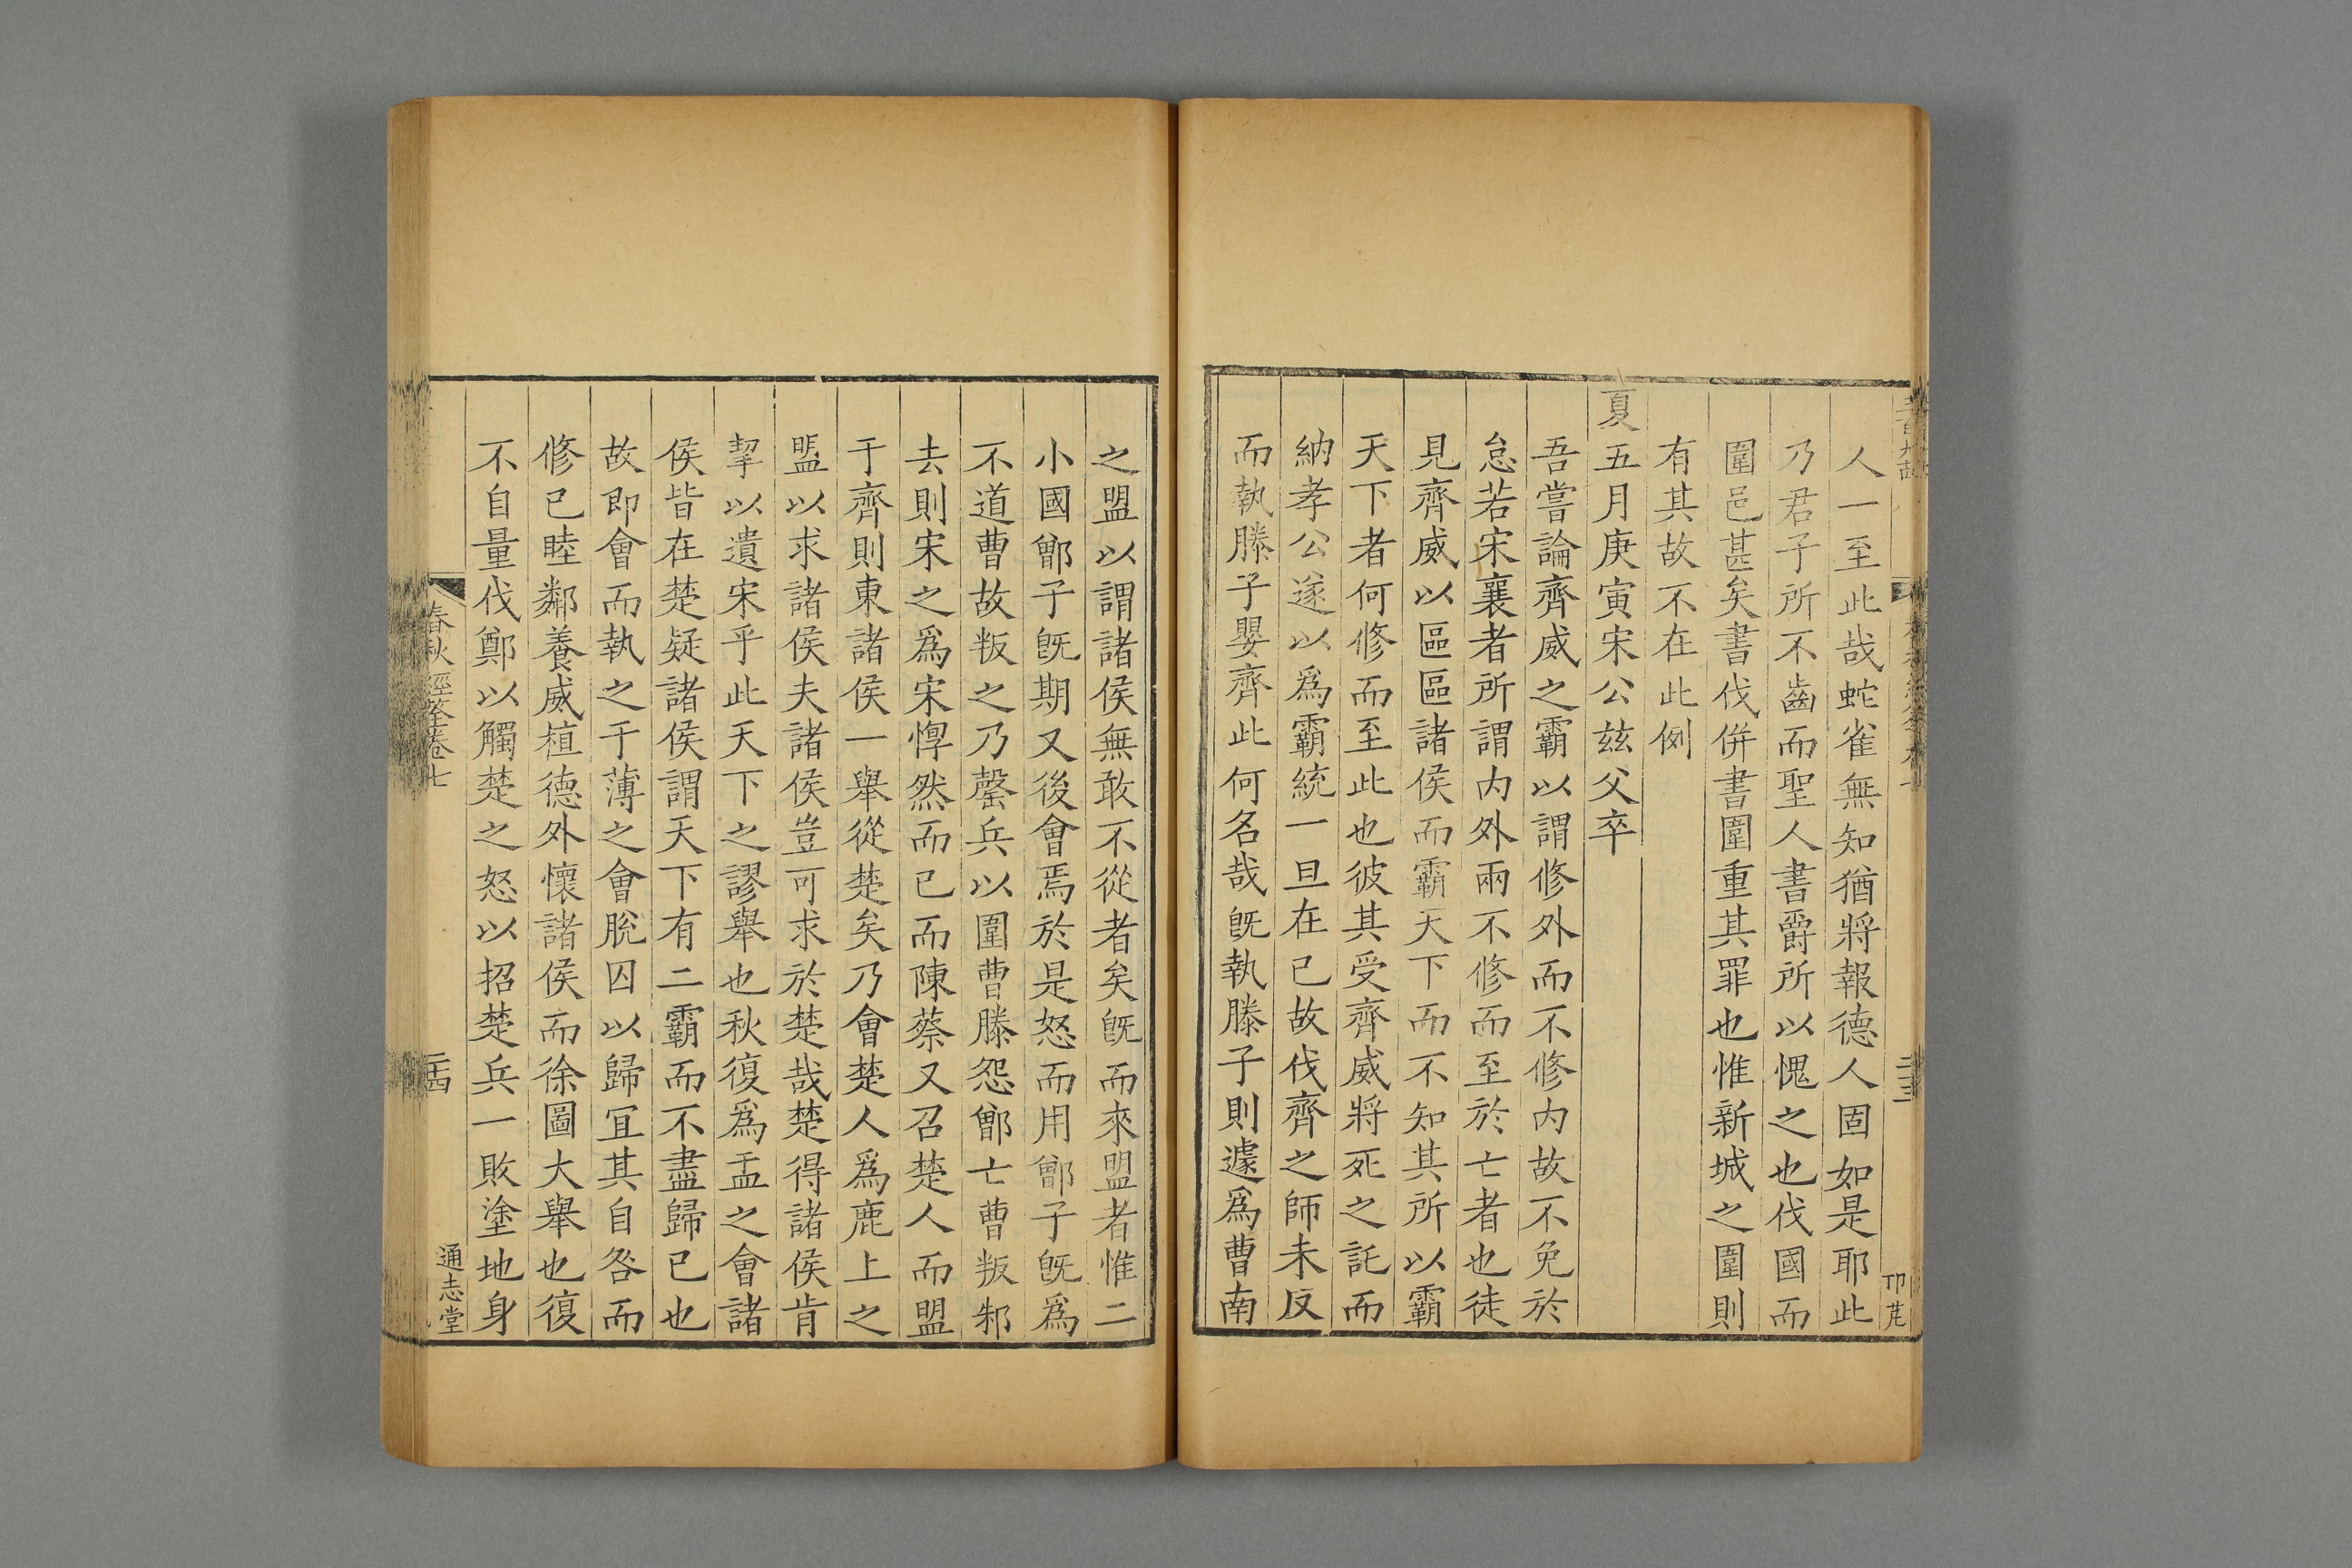 人一至此哉蛇雀無知猶將報德人固如是耶此
乃君子所不齒而聖人書爵所以愧之也伐國而
圍邑甚矣書伐併書圍重其罪也惟新城之圍則
有其故不在此例
夏五月庚寅宋公玆父卒
吾嘗論齊威之霸以謂修外而不修内故不免於
怠若宋襄者所謂内外兩不修而至於亡者也徒
見齊威以區區諸侯而霸天下而不知其所以霸
天下者何修而至此也彼其受齊威將死之託而
納孝公遂以爲霸統一旦在已故伐齊之師未反
而執滕子嬰齊此何名哉旣執滕子則遽爲曹南
之盟以謂諸侯無敢不從者矣旣而來盟者惟二
小國鄫子旣期又後會焉於是怒而用鄫子旣爲
不道曹故叛之乃罄兵以圍曹滕怨鄫亡曹叛邾
去則宋之爲宋惸然而已而陳蔡又召楚人而盟
于齊則東諸侯一舉從楚矣乃會楚人爲鹿上之
盟以求諸侯夫諸侯豈可求於楚哉楚得諸侯肯
挈以遺宋乎此天下之謬舉也秋復爲盂之會諸
侯皆在楚疑諸侯謂天下有二霸而不盡歸已也
故即會而執之于薄之會脫囚以歸宜其自咎而
修已睦鄰養威植德外懷諸侯而徐圖大舉也復
不自量伐鄭以觸楚之怒以招楚兵一敗塗地身
春秋經筌卷七
二十四
通志堂